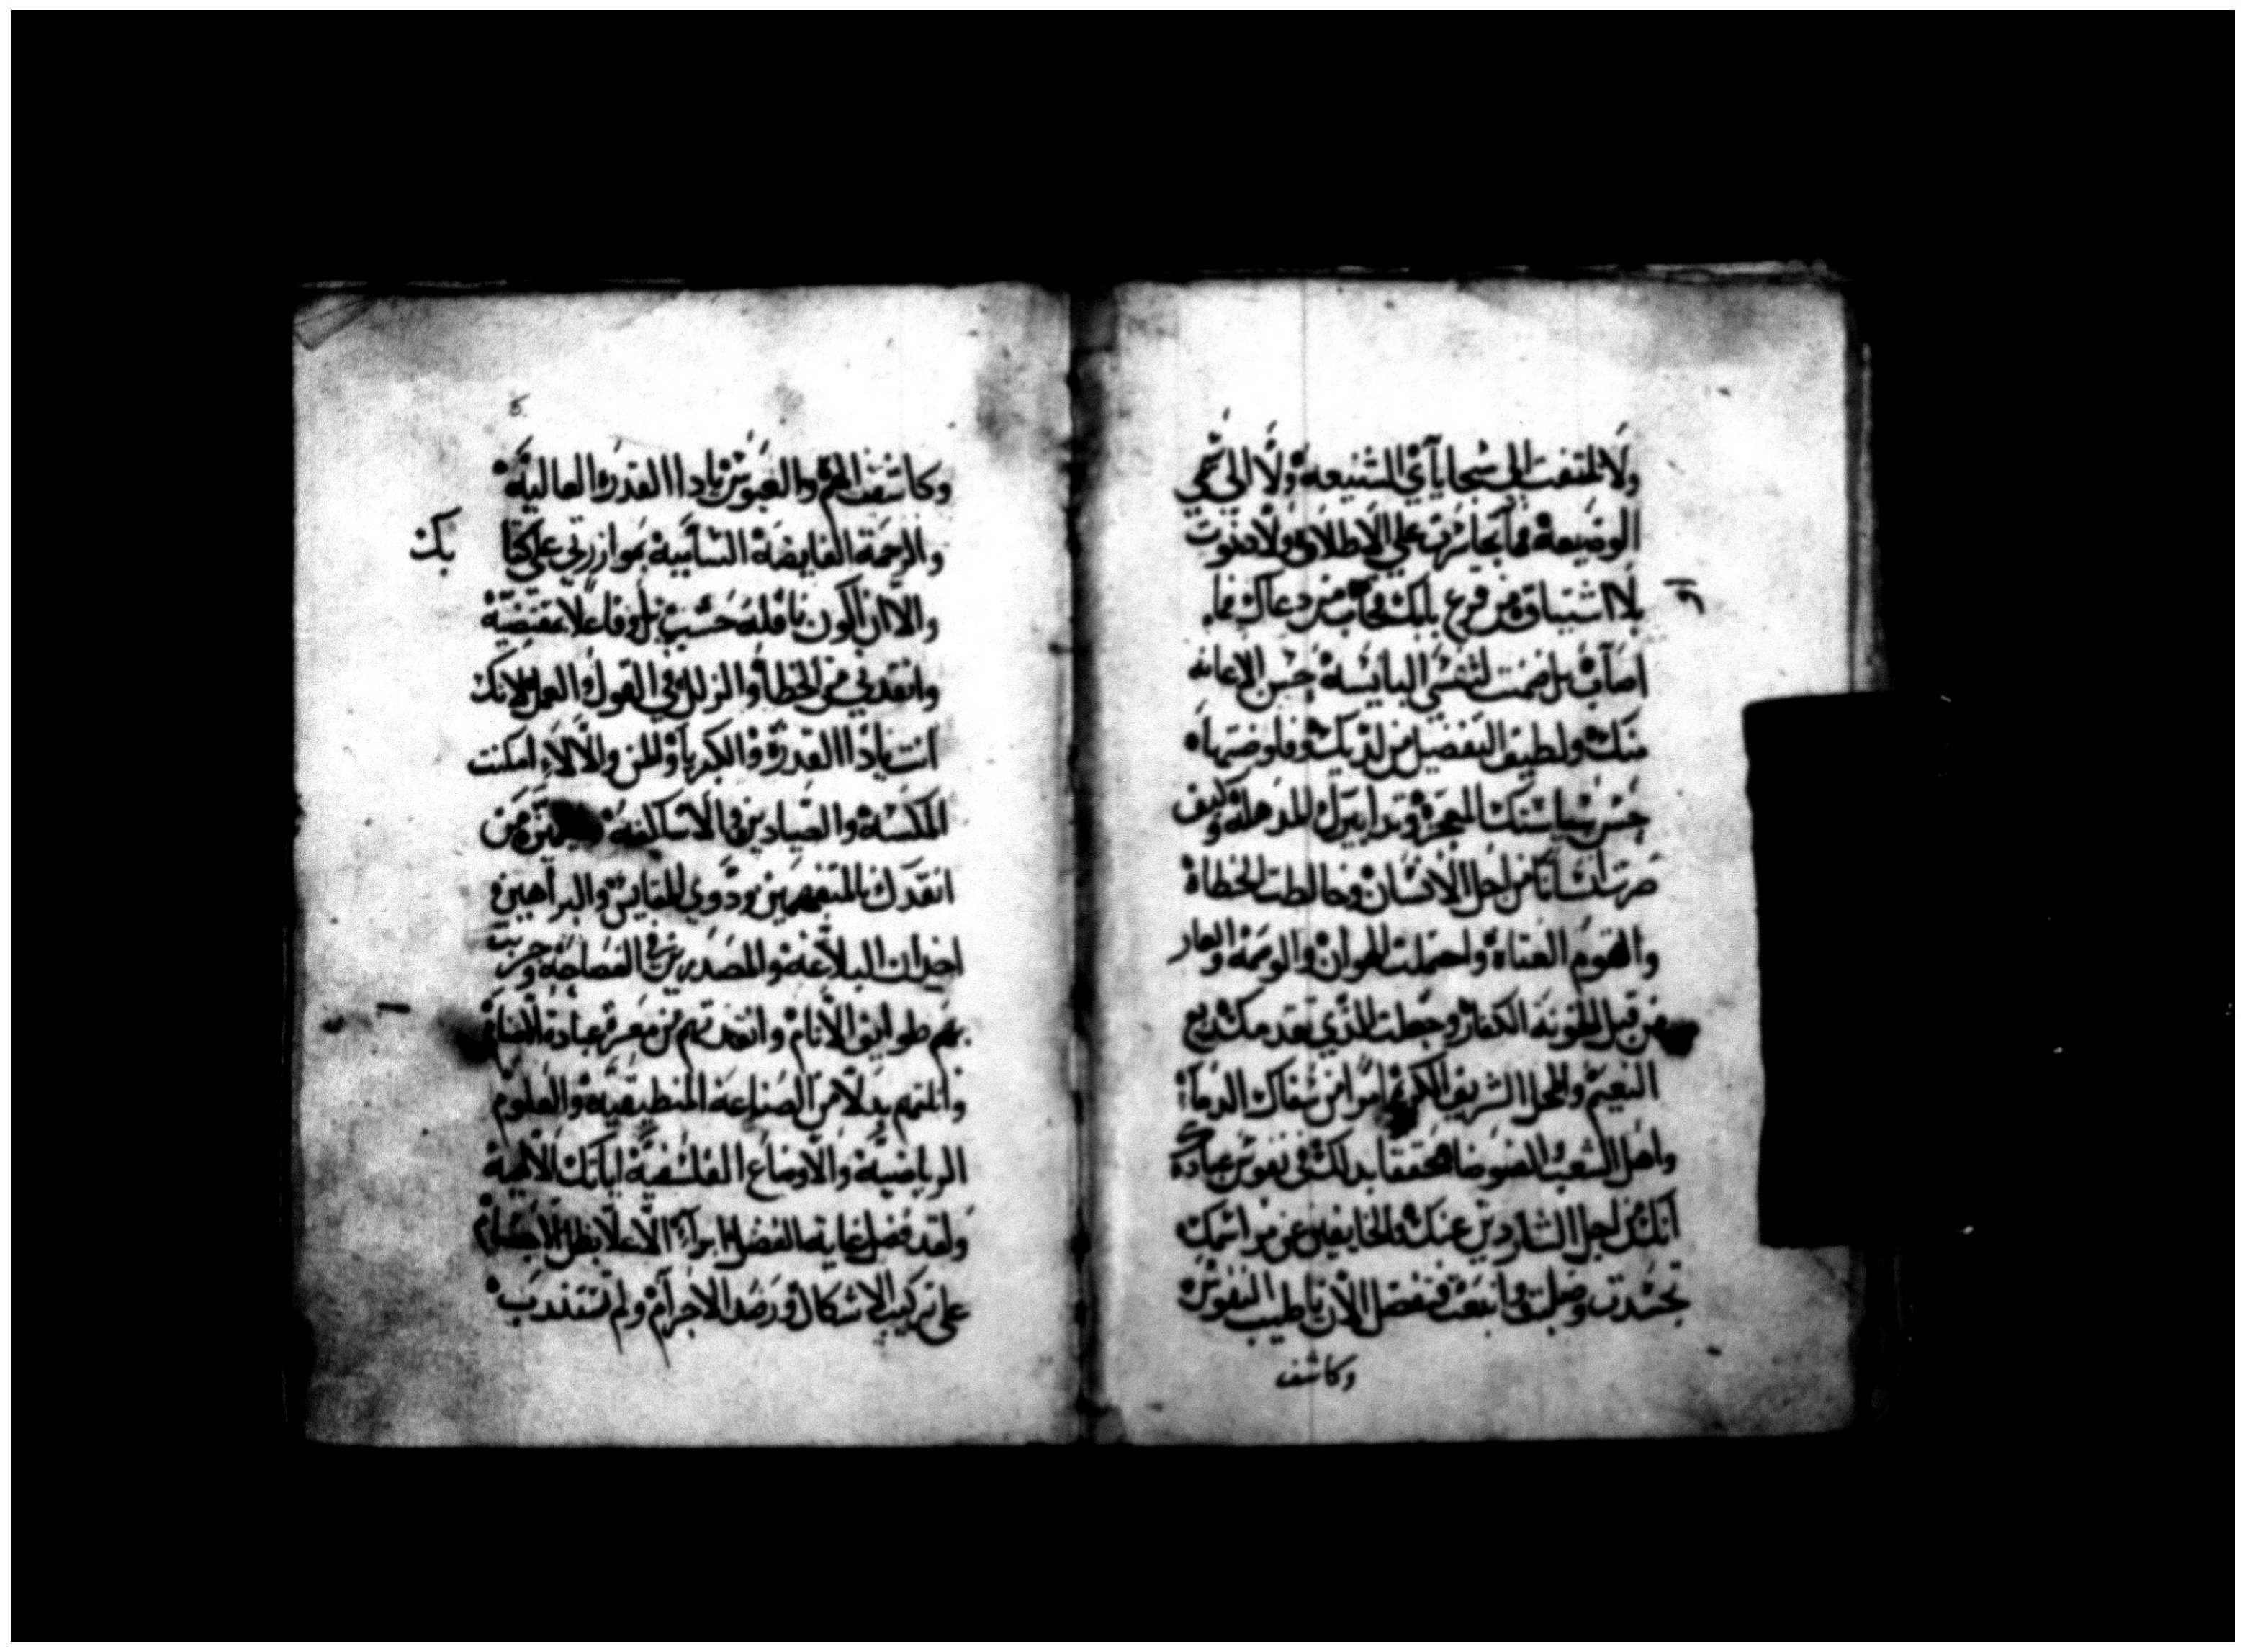 ولا ملتفت الى سجاياي الشنيعة ولا الى شيمي
الوضيعة مما تجاسرت على الاطلاق ولا دنوت
بلا اشتياق من قرع بابك مجاب من دعاك فما
اصاب بل ضمت لنفسي البايسة حسن الاعانه
منك ولطيف التفضيل من لديك وفاوضتها
حسن سياستك المعجزة وتدابيرك المذهلة وكيف
صرت انسانا من اجل الانسان وخالطت الخطاة
والقوم العتاة واحتملت الهوان والوصمة والعار
من قبل الخونة الكفار وجعلت الذي تقدمك بديع
النعيم والمحل الشريف الكريم امرا من سفاك الدماء
واهل الشغب والضوضا محققا بذلك في نفوس عبادك
انك من اجل الشاردين عنك والخايفين عن مراسمك
تجسدت وصلبت وانبعثت فتفضل الان يا طبيب النفوس
وكاشف
وكاشف الهم والعبوس يا ذا القدرة العالية
والرحمة الفايضة السابية بموازرتي على
بك
والا ان اكون ناقله حسب بل وفاعلا بمقتضية
وانقدني من الخطا والزلل في القول والعمل لانك
انت يا ذا القدرة والكبريا والمن والالاء امكنت
المكسة والصيادين والاساكفة من
انقدك بالمتفهمين وذوي المقاييس والبراهين
اخدان البلاغة والمصدرين في الفصاحة وجربت
بهم طوايف الانام وانقدتهم من معرة عبادة الاصنام
وانلتهم بدلا من الصناعة المنطيقية والعلوم
الرياضية والاوضاع الفلسفية اياتك الالهية
ولقد فضل غاية الفضل ابراء الاعلا بظل الاجسام
على تركيب الاشكال ورصد الاجرام ولم تستندب